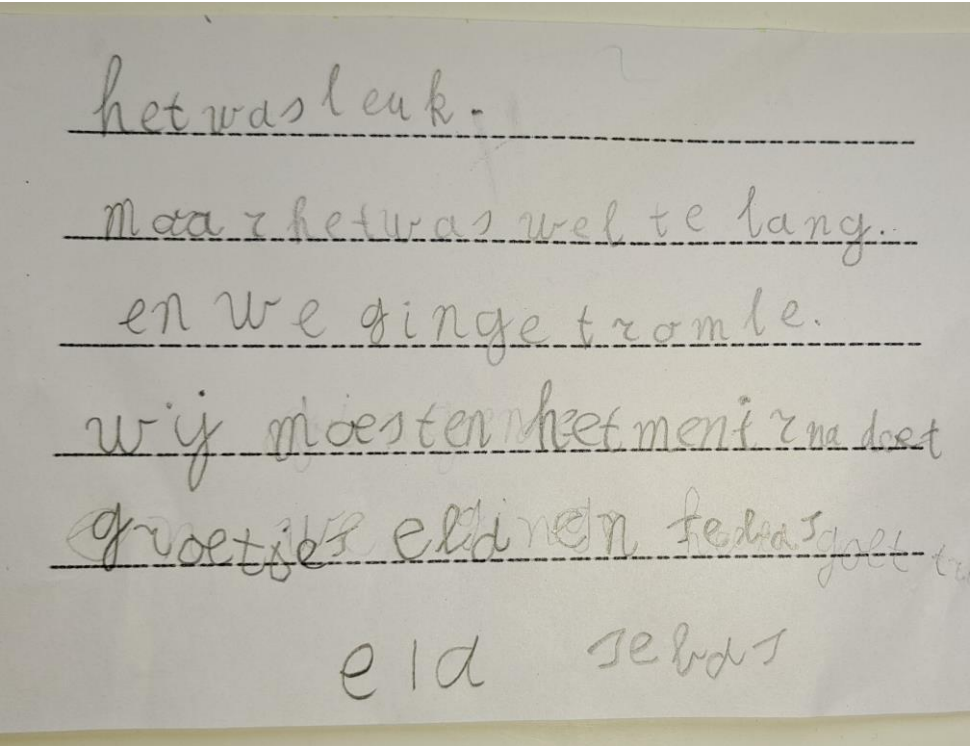 het was leuk.
maar het was wel te lang.
en we ginge tromle.
wij moesten het menir na doet
groetjes eld en sebas
eld sebas